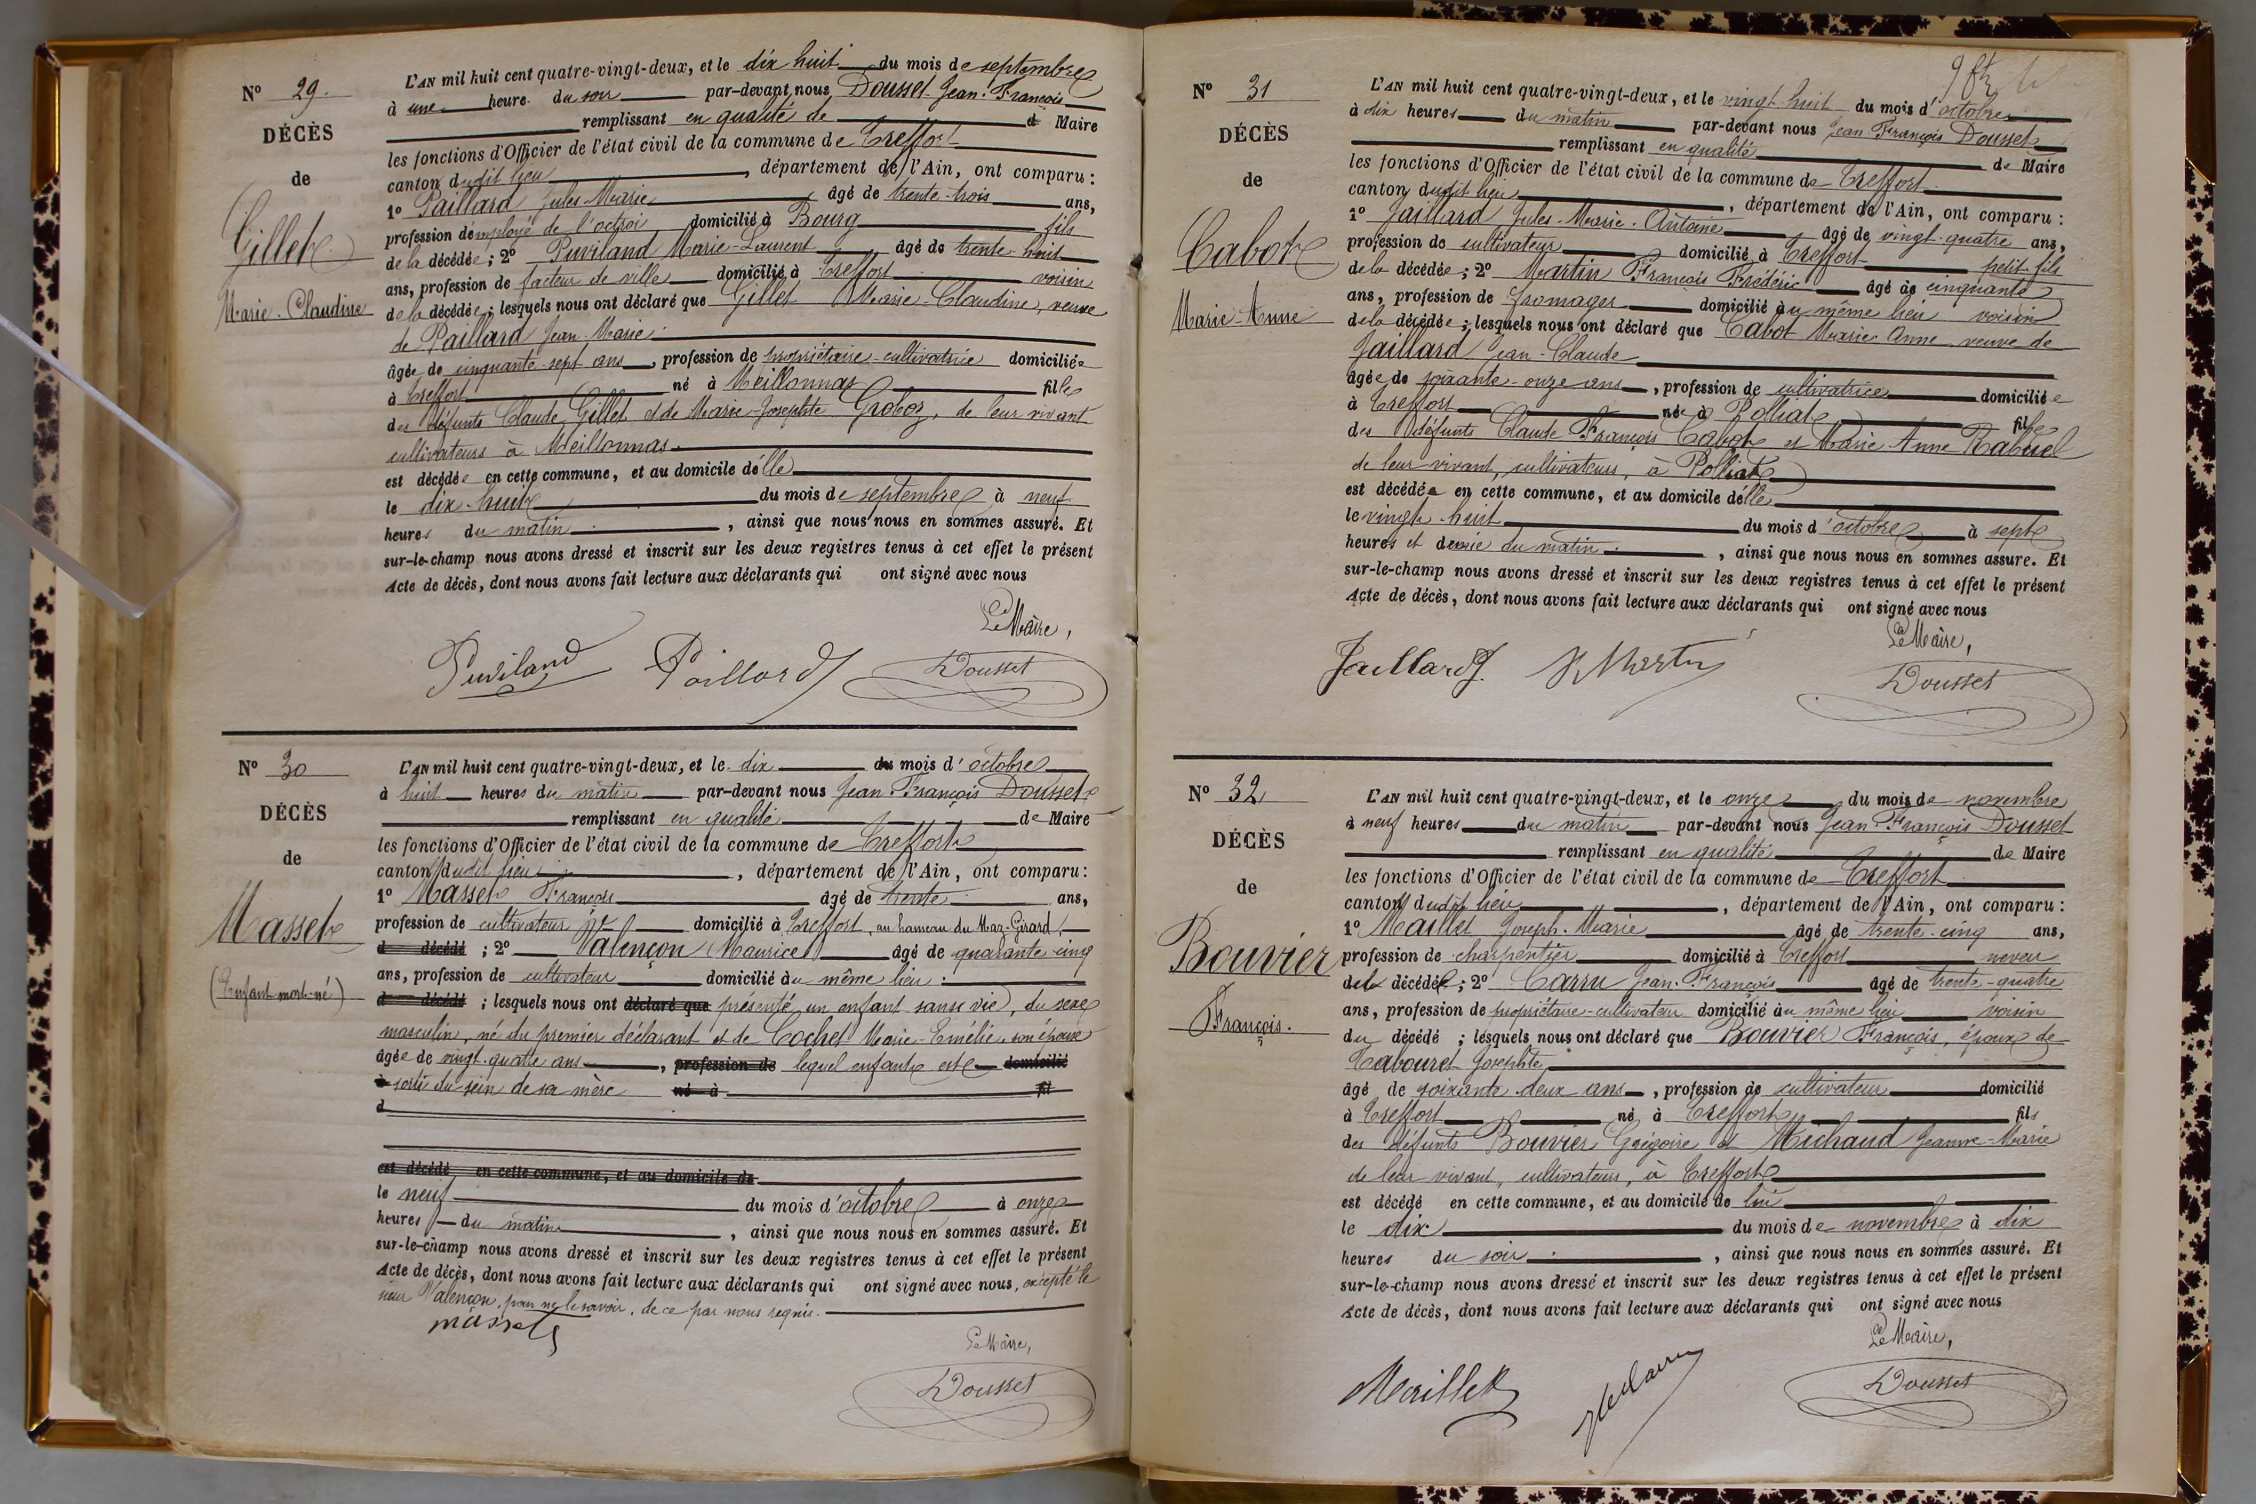 N° 29.
DÉCÈS
de
Gillet
Marie-Claudine
L'AN mil huit cent quatre-vingt-deux, et le dix huit du mois de septembre
à une heure du soir par-devant nous Dousset Jean-François
remplissant en qualité de d Maire
les fonctions d'Officier de l'état civil de la commune de Treffort
canton dudit lieu, département de l'Ain, ont comparu :
1° Paillard Jules-Marie âgé de trente-trois ans,
profession d'employé de l'octroi domicilié à Bourg fils
de la décédée ; 2° Puviland Marie-Laurent âgé de trente-huit
ans, profession de facteur de ville domicilié à Treffort voisin
de la décédée ; lesquels nous ont déclaré que Gillet Marie-Claudine, veuve
de Paillard Jean-Marie
âgée de cinquante-sept ans, profession de propriétaire-cultivatrice domiciliée
à Treffort né à Meillonnas fille
des défunts Claude Gillet et de Marie-Josephte Groboz, de leur vivant
cultivateurs à Meillonnas
est décédée en cette commune, et au domicile d'elle
le dix-huit du mois de septembre à neuf
heures du matin, ainsi que nous nous en sommes assuré. Et
sur-le-champ nous avons dressé et inscrit sur les deux registres tenus à cet effet le présent
Acte de décès, dont nous avons fait lecture aux déclarants qui ont signé avec nous
Le Maire,
Puviland Paillard Dousset
N° 30
DÉCÈS
de
Masset
(Enfant mort-né)
L'AN mil huit cent quatre-vingt-deux, et le dix du mois d'octobre
à huit heures du matin par-devant nous Jean-François Dousset
remplissant en qualité de Maire
les fonctions d'Officier de l'état civil de la commune de Treffort
canton dudit lieu, département de l'Ain, ont comparu :
1° Masset François âgé de trente ans,
profession de cultivateur domicilié à Treffort, au hameau du Maz-Girard,
d décédé ; 2° Valençon Maurice âgé de quarante-cinq
ans, profession de cultivateur domicilié au même lieu
d décédé ; lesquels nous ont déclaré que présenté un enfant sans vie, du sexe
masculin, né du premier déclarant et de Cochet Marie-Emélie, son épouse
âgée de vingt-quatre ans, profession de lequel enfant est domicilié
à sorti du sein de sa mère né à fil
d
est décédé en cette commune, et au domicile de
le neuf du mois d'octobre à onze
heures du matin, ainsi que nous nous en sommes assuré. Et
sur-le-champ nous avons dressé et inscrit sur les deux registres tenus à cet effet le présent
Acte de décès, dont nous avons fait lecture aux déclarants qui ont signé avec nous, excepté le
sieur Valençon, pour ne le savoir, de ce par nous requis.
masset
Le Maire,
Dousset
N° 31
DÉCÈS
de
Cabot
Marie-Anne
L'AN mil huit cent quatre-vingt-deux, et le vingt-huit du mois d'octobre
à dix heures du matin par-devant nous Jean François Dousset
remplissant en qualité de Maire
les fonctions d'Officier de l'état civil de la commune de Treffort
canton dudit lieu, département de l'Ain, ont comparu :
1° Jaillard Jules-Marie-Antoine âgé de vingt-quatre ans,
profession de cultivateur domicilié à Treffort petit-fils
de la décédée ; 2° Martin François Frédéric âgé de cinquante
ans, profession de fromager domicilié au même lieu voisin
de la décédée ; lesquels nous ont déclaré que Cabot Marie Anne veuve de
Jaillard Jean-Claude
âgée de soixante-onze ans, profession de cultivatrice domiciliée
à Treffort née à Polliat fille
des défunts Claude François Cabot et Marie-Anne Rabuel
de leur vivant, cultivateurs, à Polliat
est décédée en cette commune, et au domicile d'elle
le vingt-huit du mois d'octobre à sept
heures et demie du matin, ainsi que nous nous en sommes assuré. Et
sur-le-champ nous avons dressé et inscrit sur les deux registres tenus à cet effet le présent
Acte de décès, dont nous avons fait lecture aux déclarants qui ont signé avec nous
Le Maire,
Jaillard J. Martin Dousset
N° 32
DÉCÈS
de
Bouvier
François.
L'AN mil huit cent quatre-vingt-deux, et le onze du mois de novembre
à neuf heures du matin par-devant nous Jean-François Dousset
remplissant en qualité de Maire
les fonctions d'Officier de l'état civil de la commune de Treffort
canton dudit lieu, département de l'Ain, ont comparu :
1° Maillet Joseph-Marie âgé de trente-cinq ans,
profession de charpentier domicilié à Treffort neveu
du décédé ; 2° Carru Jean-François âgé de trente-quatre
ans, profession de propriétaire-cultivateur domicilié au même lieu voisin
du décédé ; lesquels nous ont déclaré que Bouvier François, époux de
Rabouret Josephte
âgé de soixante-deux ans, profession de cultivateur domicilié
à Treffort né à Treffort fils
des défunts Bouvier Grégoire et Michaud Jeanne-Marie
de leur vivant, cultivateurs, à Treffort
est décédé en cette commune, et au domicile de lui
le dix du mois de novembre à dix
heures du soir, ainsi que nous nous en sommes assuré. Et
sur-le-champ nous avons dressé et inscrit sur les deux registres tenus à cet effet le présent
Acte de décès, dont nous avons fait lecture aux déclarants qui ont signé avec nous
Le Maire,
Maillet Dousset